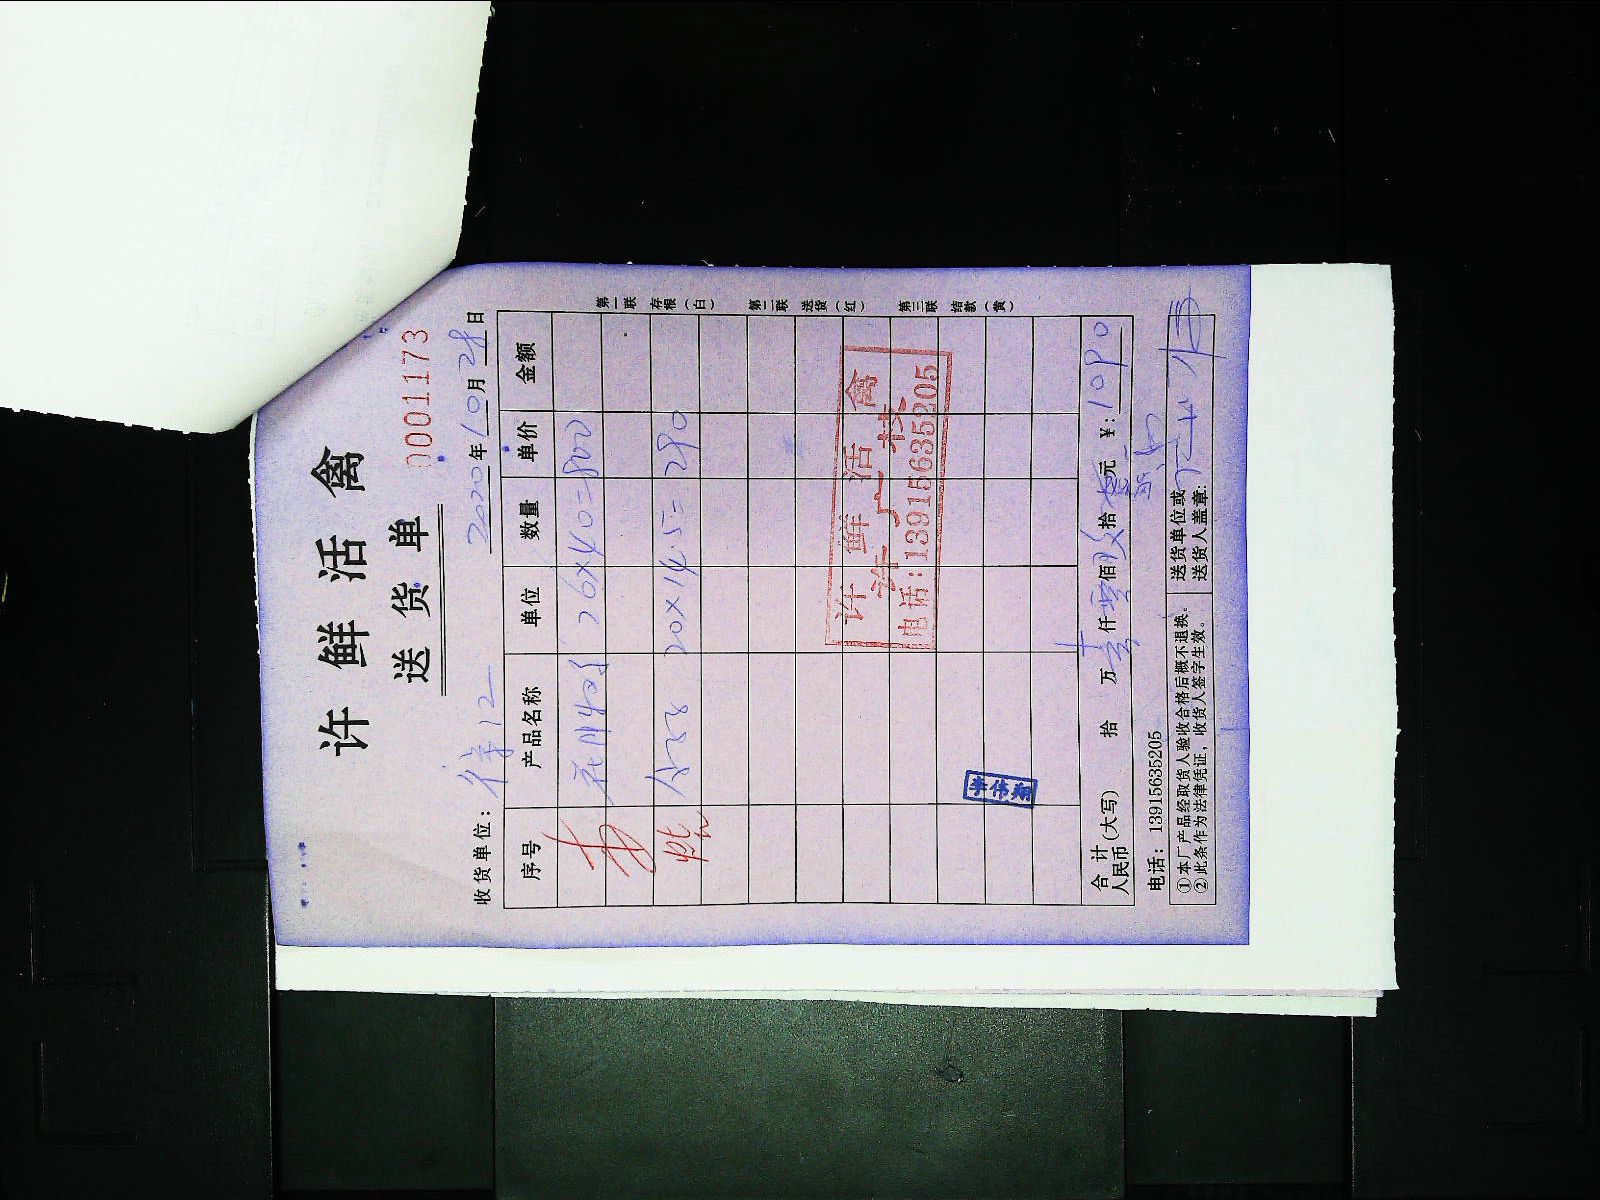 许鲜活禽
送货单
0001173
收货单位: 2020年10月28日
序号 产品名称 单位 数量 单价 金额
20×40=800
20×14.5=290
第一联 存根(白) 第二联 送货(红) 第三联 结款(黄)
许鲜活禽
电话:13915635205
李伟翔
合计
人民币(大写) 拾 万壹仟零佰玖拾 元 ¥:1090
电话: 13915635205
①本厂产品经取货人验收合格后概不退换。
②此条作为法律凭证,收货人签字生效。
送货单位或
送货人盖章: